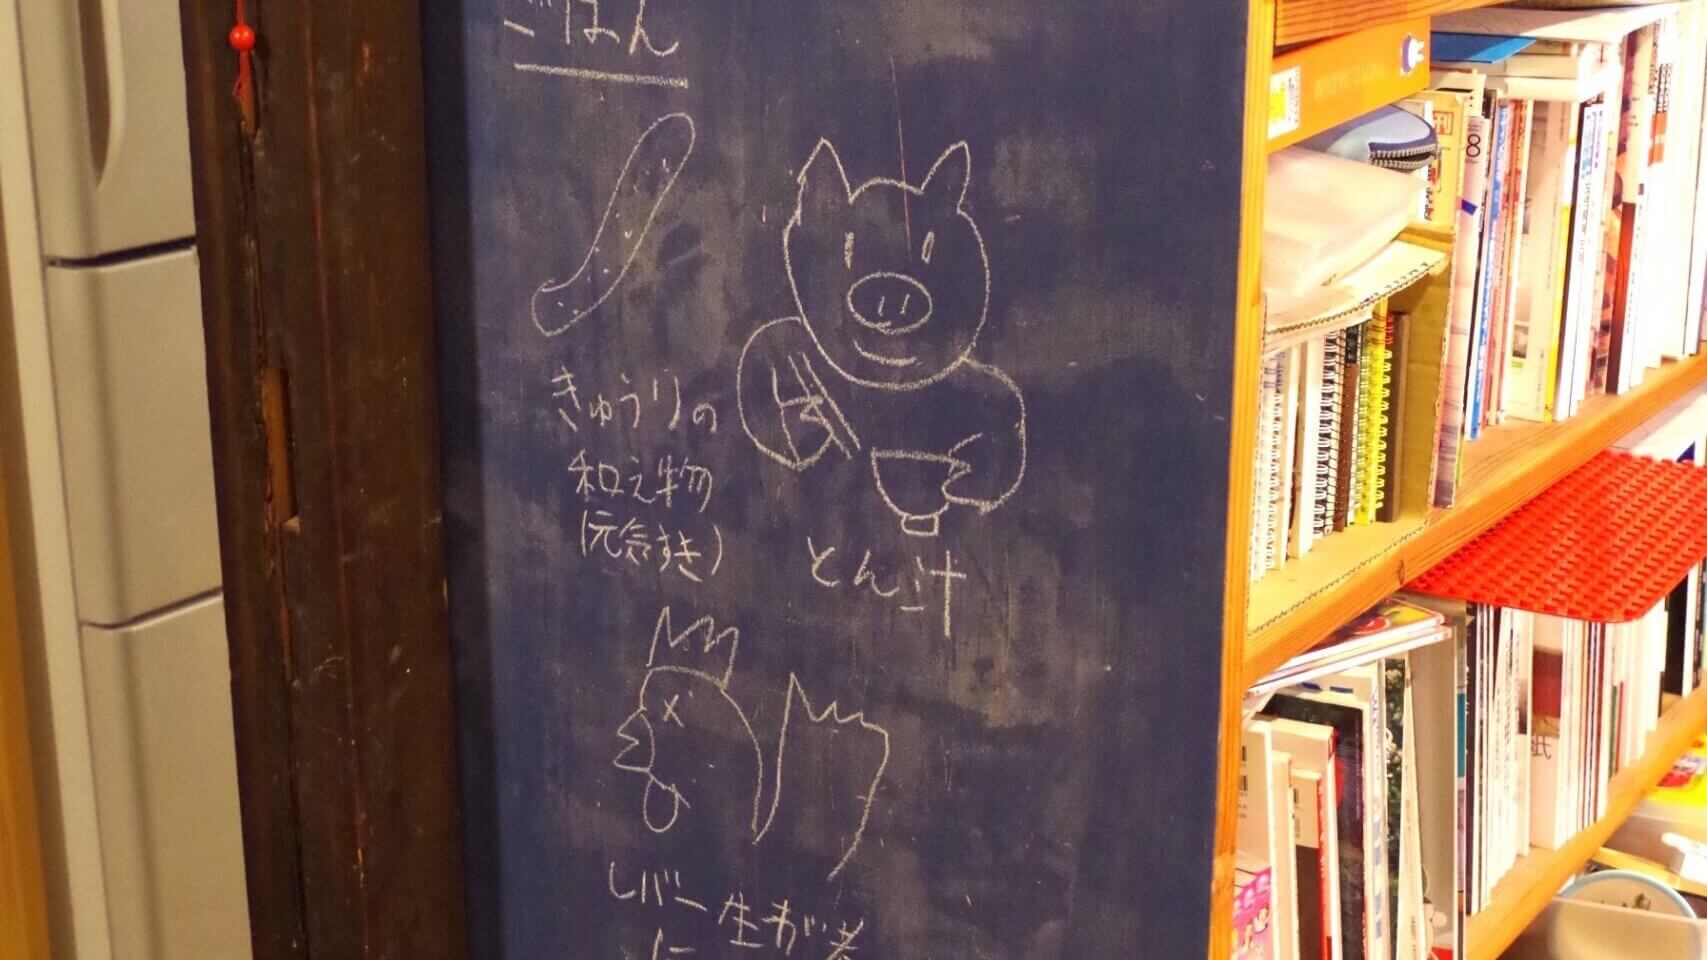 ごはん
きゅうりの
和え物
(元気すぎ)
とん汁
レバー生が煮